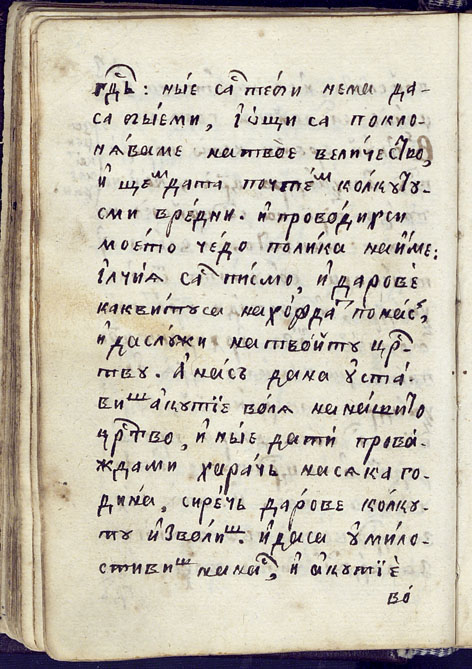 гдⷭ҇ь: ные са тебѝ нема да-
са бїеми, ѝ ощи са покло-
нѧваме на твое величество,
ѝ щеⷨ да та почтеⷨ колкуту-
сми вредни. ѝ проводихси
моето чедо полика на име:
илчиѧ са писмо, ѝ дарове
каквитуса находѧⷮ по насъ,
ѝ да служи на твойту црⷭ-
тву. А насъ да на ѹста-
виⷲ акутїе волѧ на нашито
црⷭтво, ѝ ные да ти прова-
ждами харачь на сѧка го-
дина, сиречь дарове колку-
ту изволиⷲ. ѝ да са ѹмило-
стивиⷲ на наⷭ, ѝ акутїе
во